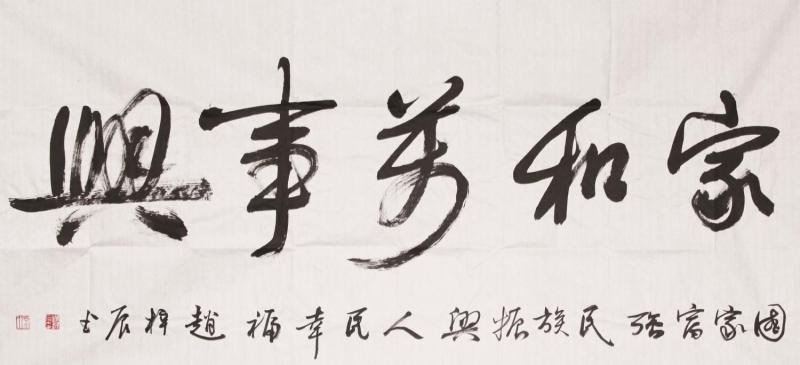 家和萬事興
國家富强民族振興人民幸福趙梓辰书